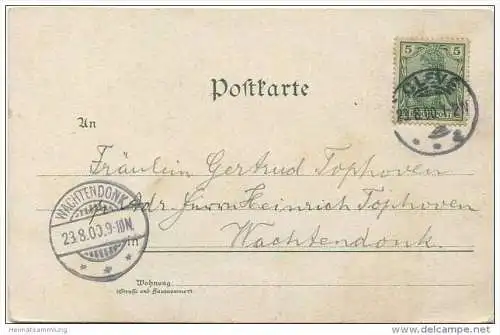 Postkarte
5 5
CLEVE
23.8.00
An
Fräulein Gertrud Tophoven
p. Adr. Herrn Heinrich Tophoven
WACHTENDONK
23.8.00.9-10N.
in
Wachtendonk.
Wohnung
(Straße und Hausnummer)
Heimatsammlung
www.delcampe.net